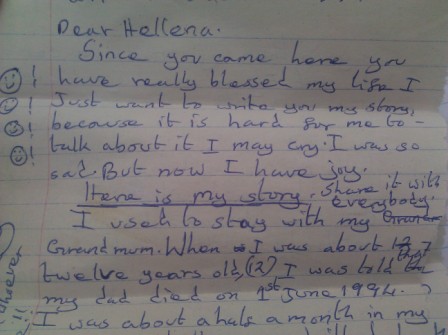 Dear Hellena.
Since you came here you
! have really blessed my life I
! Just want to write you my story,
! because it is hard for me to-
! talk about it I may cry. I was so
sad. But now I have joy.
Here is my story. Share it with
everybody.
I used to stay with my
Grandmum. When I was about
twelve years old, (12) I was told
my dad died on 1st June 1994.
I was about a half a month in my